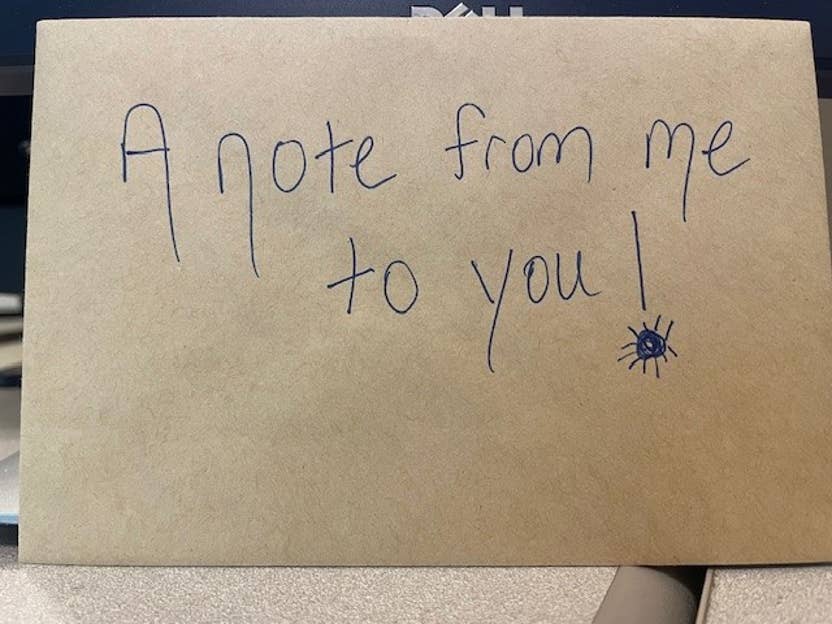 DELL
A note from me
to you!